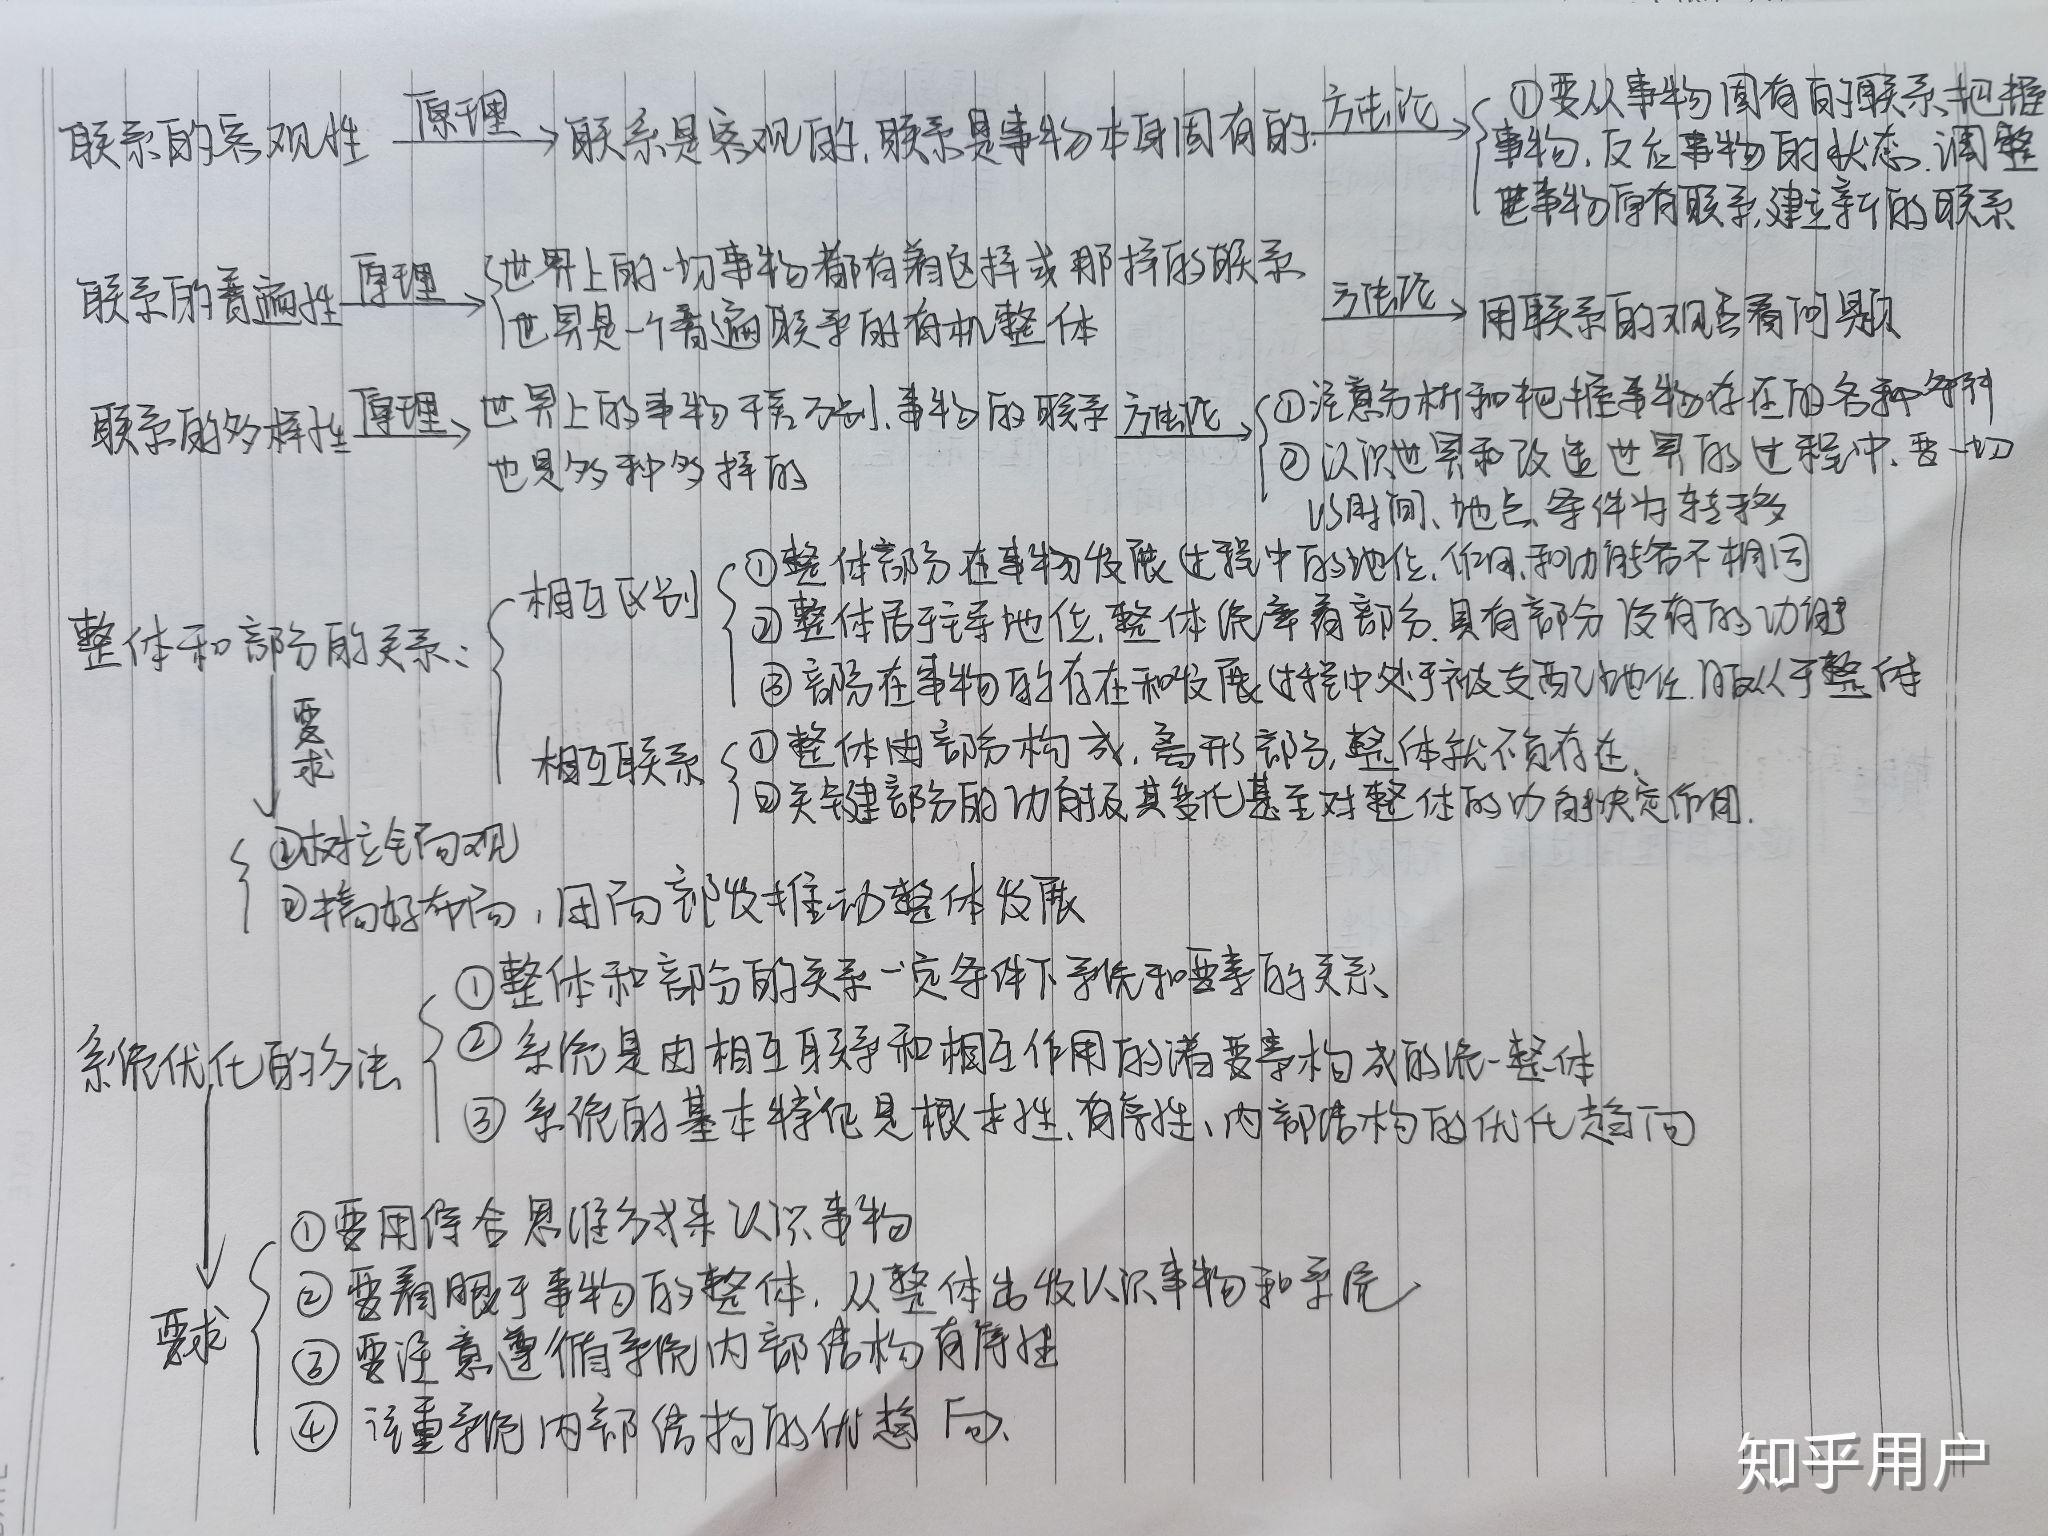 联系的客观性 原理 联系是客观的,联系是事物本身固有的. 方法论 ①要从事物固有的联系把握
事物,反应事物的状态.调整
事物原有联系,建立新的联系
联系的普遍性 原理 世界上的一切事物都有着这样或那样的联系
世界是一个普遍联系的有机整体
方法论 用联系的观点看问题
联系的多样性 原理 世界上的事物千差万别、事物的联系
也是多种多样的
方法论 ①注意分析和把握事物存在的各种条件
②认识世界和改造世界的过程中、要一切
以时间、地点、条件为转移
整体和部分的关系:
相互区别 ①整体部分在事物发展过程中的地位、作用、和功能各不相同
②整体居于主导地位,整体统率着部分.具有部分没有的功能
③部分在事物的存在和发展过程中处于被支配地位.服从于整体
相互联系 ①整体由部分构成,离开部分,整体就不复存在、
②关键部分的功能及其变化甚至对整体的功能决定作用.
要求
①树立全局观
②搞好布局,用局部发推动整体发展
系统优化的方法
①整体和部分的关系一定条件下系统和要素的关系、
②系统是由相互联系和相互作用的诸要素构成的统一整体
③系统的基本特征是根本性、有序性、内部结构的优化趋向
要求
①要用综合思维方式来认识事物
②要着眼于事物的整体、从整体出发认识事物和系统
③要注意遵循系统内部结构有序性
④注重系统内部结构的优趋向、
知乎用户